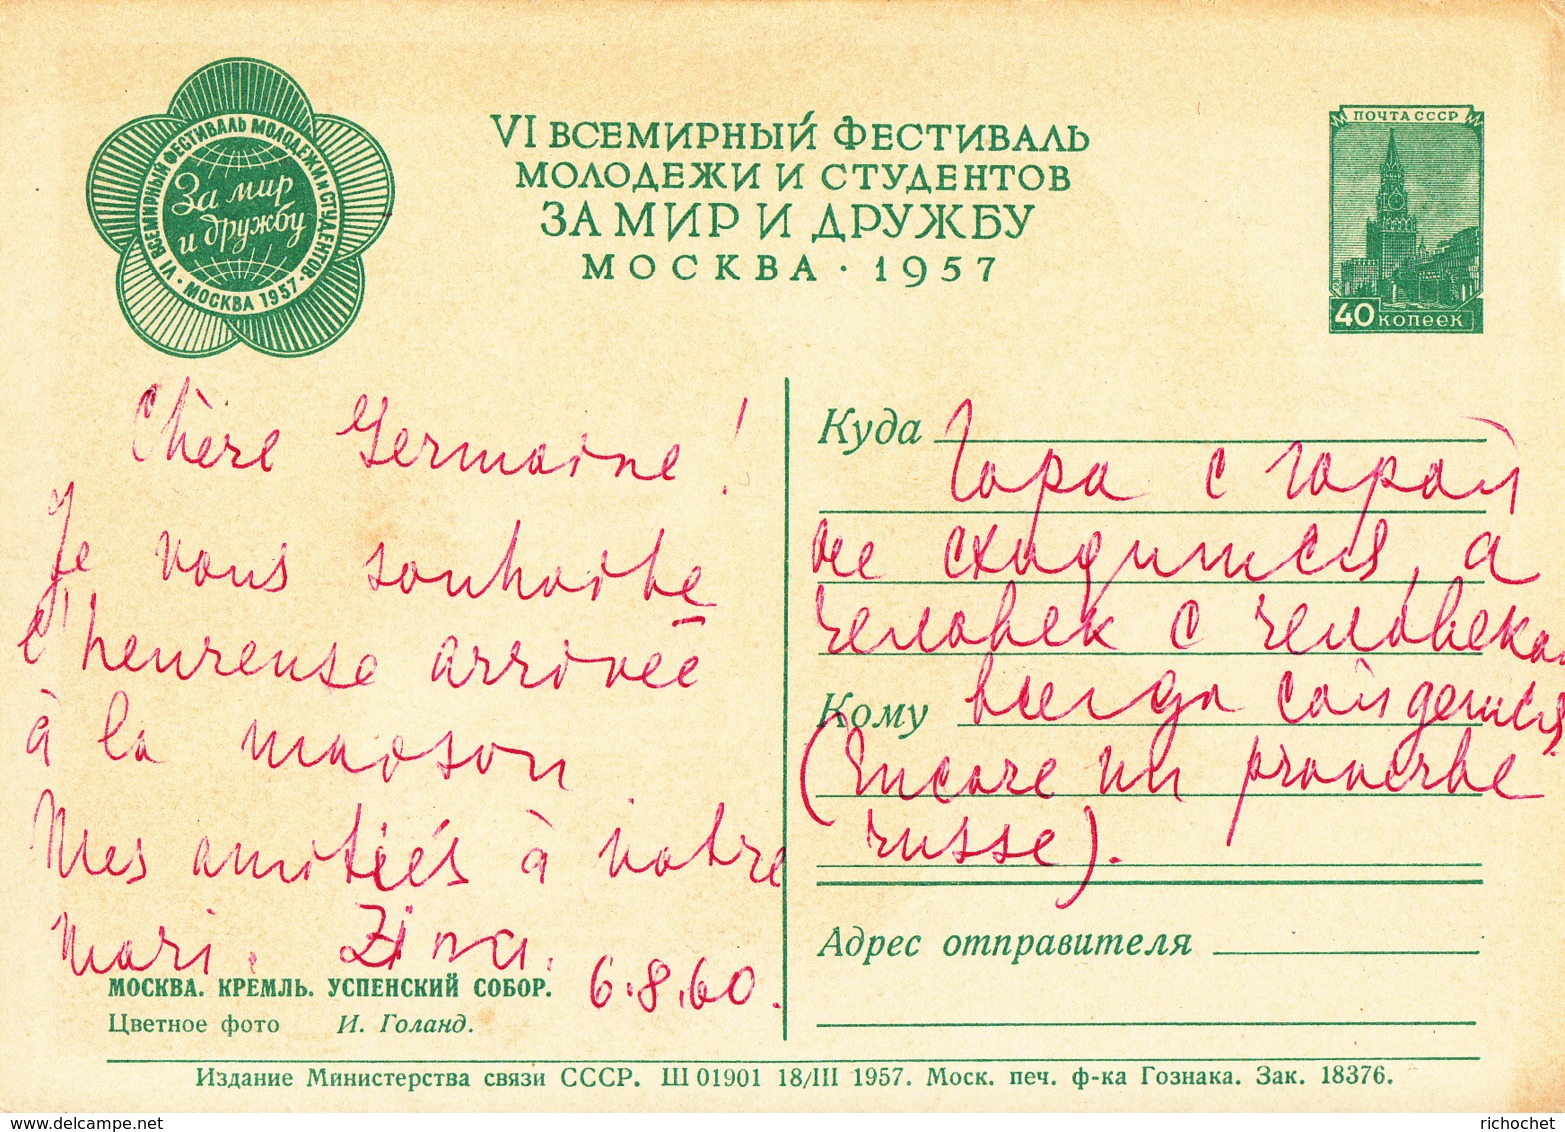 VI ВСЕМИРНЫЙ ФЕСТИВАЛЬ МОЛОДЕЖИ И СТУДЕНТОВ · МОСКВА 1957 ·
За мир
и дружбу
VI ВСЕМИРНЫЙ ФЕСТИВАЛЬ
МОЛОДЕЖИ И СТУДЕНТОВ
ЗА МИР И ДРУЖБУ
МОСКВА · 1957
ПОЧТА СССР
40 копеек
Chère Germaine!
Je vous souhaite
l'heureuse arrivée
à la maison
Mes amitiés à votre
mari. Zina.
6.8.60.
МОСКВА. КРЕМЛЬ. УСПЕНСКИЙ СОБОР.
Цветное фото И. Голанд.
Куда
Гора с горой
не сходится, а
человек с человеком
Кому всегда сойдется
(Encore un proverbe
russe).
Адрес отправителя
Издание Министерства связи СССР. Ш 01901 18/III 1957. Моск. печ. ф-ка Гознака. Зак. 18376.
richochet